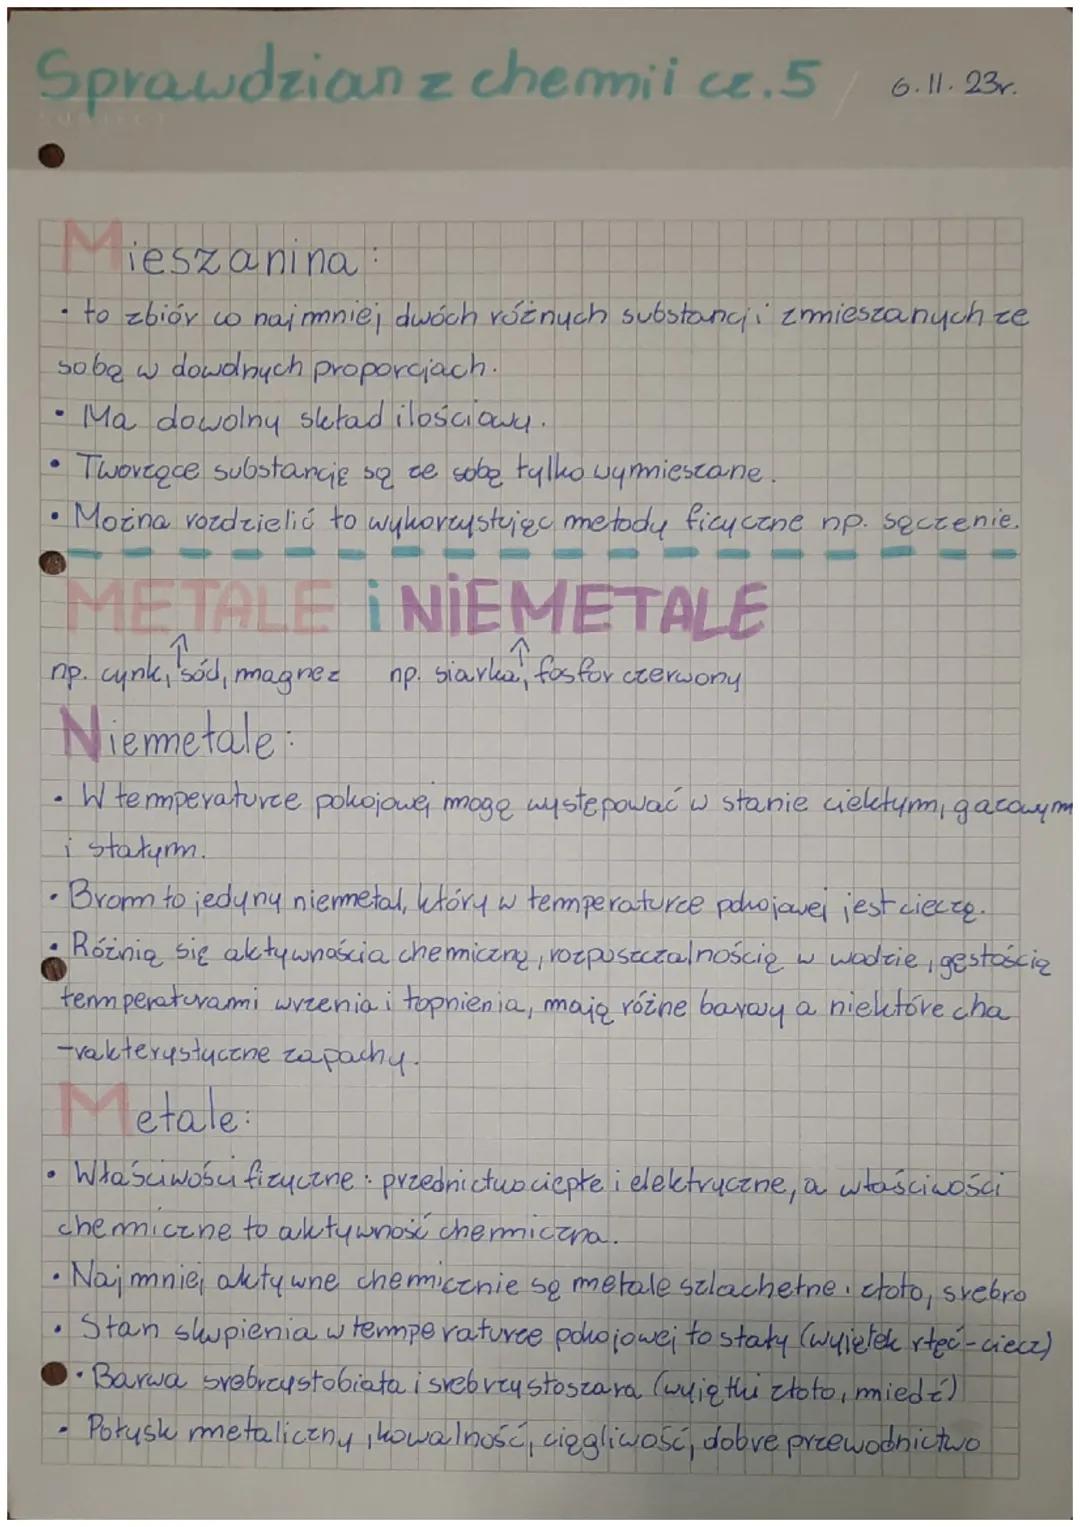 Sprawdzian z chemii cz.5 / 6.11.23r.
SUBJECT
Mieszanina:
• to zbiór co najmniej dwóch różnych substancji zmieszanych ze
sobą w dowolnych proporcjach.
• Ma dowolny skład ilościowy.
• Tworzące substancję są ze sobą tylko wymieszane.
• Można rozdzielić to wykorzystując metody fizyczne np. sączenie.
METALE i NIEMETALE
np. cynk, sód, magnez np. siarka, fosfor czerwony
Niemetale:
• W temperaturze pokojowej mogą występować w stanie ciekłym, gazowym
i stałym.
• Brom to jedyny niemetal, który w temperaturze pokojowej jest cieczą.
• Różnią się aktywnościa chemiczną, rozpuszczalnością w wodzie, gęstością
temperaturami wrzenia i topnienia, mają różne barwy a niektóre cha
-rakterystyczne zapachy.
Metale:
• Właściwości fizyczne: przednictwo ciepłe i elektryczne, a właściwości
chemiczne to aktywność chemiczna.
• Najmniej aktywne chemicznie są metale szlachetne: złoto, srebro
• Stan skupienia w temperaturze pokojowej to stały (wyjątek rtęć-ciecz)
• Barwa srebrzystobiała i srebrzystoszara (wyjątki złoto, miedź)
• Połysk metaliczny, kowalność, ciągliwość, dobre przewodnictwo